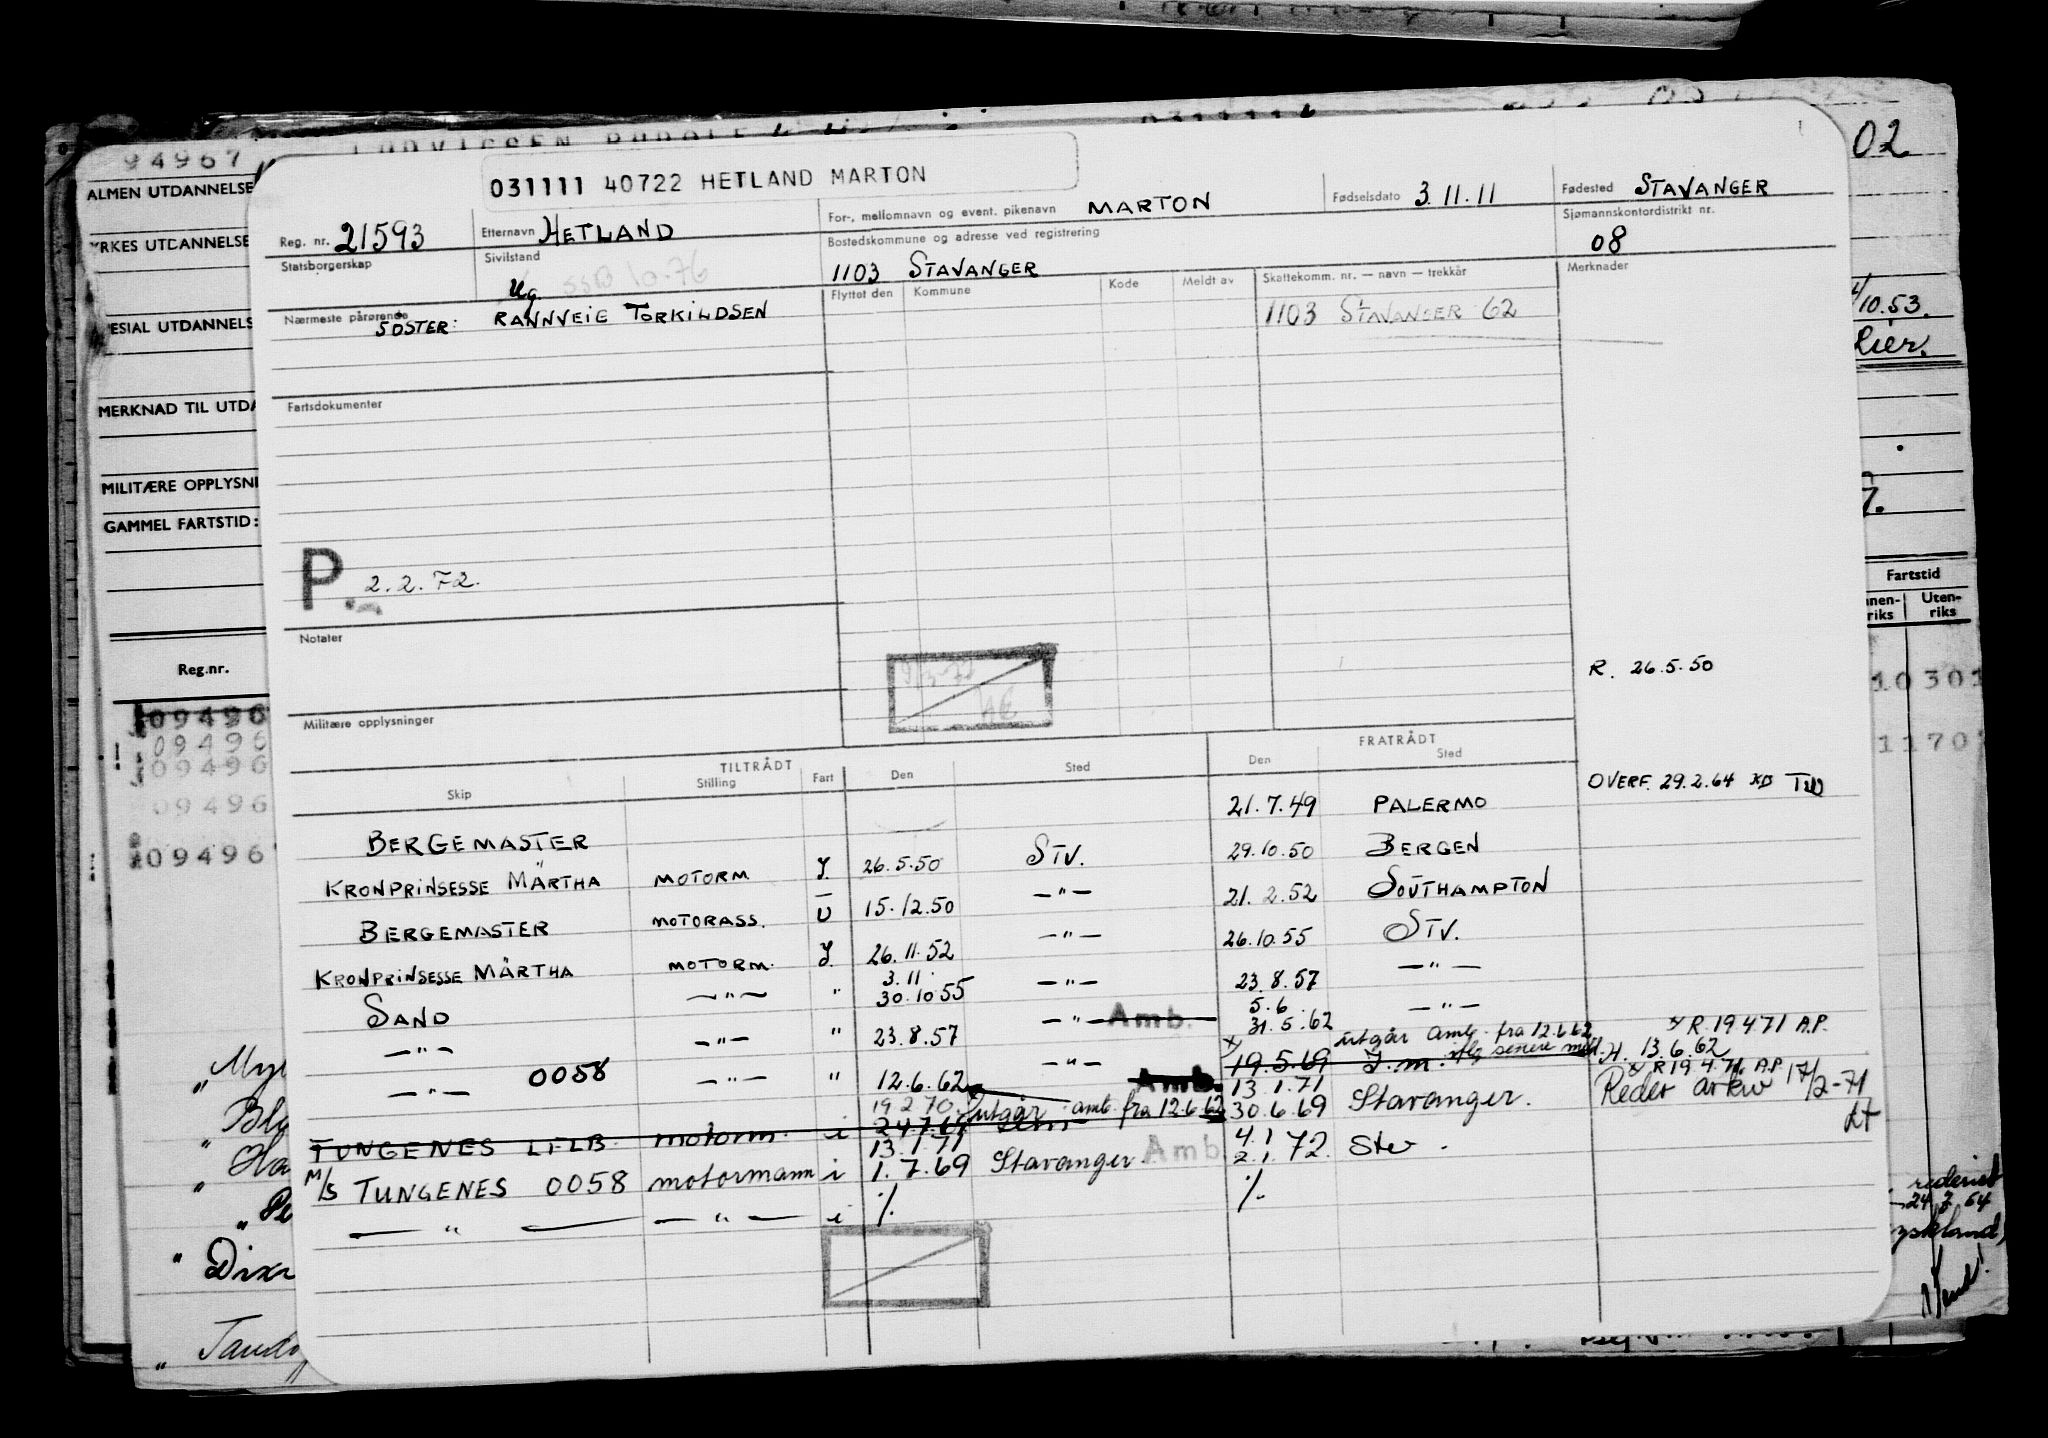 94967
02
ALMEN UTDANNELSE
YRKES UTDANNELSE
MERKNAD TIL UTDA
MILITÆRE OPPLYSNI
GAMMEL FARTSTID:
Reg.nr.
031111 40722 HETLAND MARTON
Reg. nr. 21593
Etternavn HETLAND
For-, mellomnavn og event. pikenavn MARTON
Fødselsdato 3.11.11
Fødested STAVANGER
Statsborgerskap
Sivilstand Ug.
Bostedskommune og adresse ved registrering
1103 STAVANGER
Sjømannskontordistrikt nr.
08
Nærmeste pårørende
SØSTER: RANNVEIG TORKILDSEN
Flyttet den Kommune Kode Meldt av Skattekomm. nr. — navn — trekkår
1103 STAVANGER 62
Merknader
Fartsdokumenter
P 2.2.72.
Notater
Militære opplysninger
R. 26.5.50
OVERF. 29.2.64
TILTRÅDT FRATRÅDT
Skip Stilling Fart Den Sted Den Sted
BERGEMASTER 21.7.49 PALERMO
KRONPRINSESSE MÄRTHA MOTORM I. 26.5.50 STV. 29.10.50 BERGEN
BERGEMASTER MOTORASS. U 15.12.50 —"— 21.2.52 SOUTHAMPTON
KRONPRINSESSE MÄRTHA MOTORM. I. 26.11.52 —"— 26.10.55 STV.
SAND —"— " 3.11 30.10.55 —"— 23.8.57 —"—
—"— —"— " 23.8.57 —"— Amb. 5.6 31.5.62 —"—
—"— 0058 —"— " 12.6.62 —"— Amb. 19.5.69 13.1.71
utgår amb. fra 12.6.62
R. 19.4.71 A.P.
H. 13.6.62
R 19.4.71 A.P
Reder arkiv 17/2-71
19.2.70 utgår amb. fra 12.6.62
30.6.69 Stavanger.
TUNGENES LFLB motorm. i 24.7.69
13.1.71
M/S TUNGENES 0058 motormann i 1.7.69 Stavanger Amb 4.1 2.1.72. Stv.
— " — — " — i ./. ./.
10.53.
Fartstid
Uten-
riks
09496
09496
09496
09496
09496
1030
1170